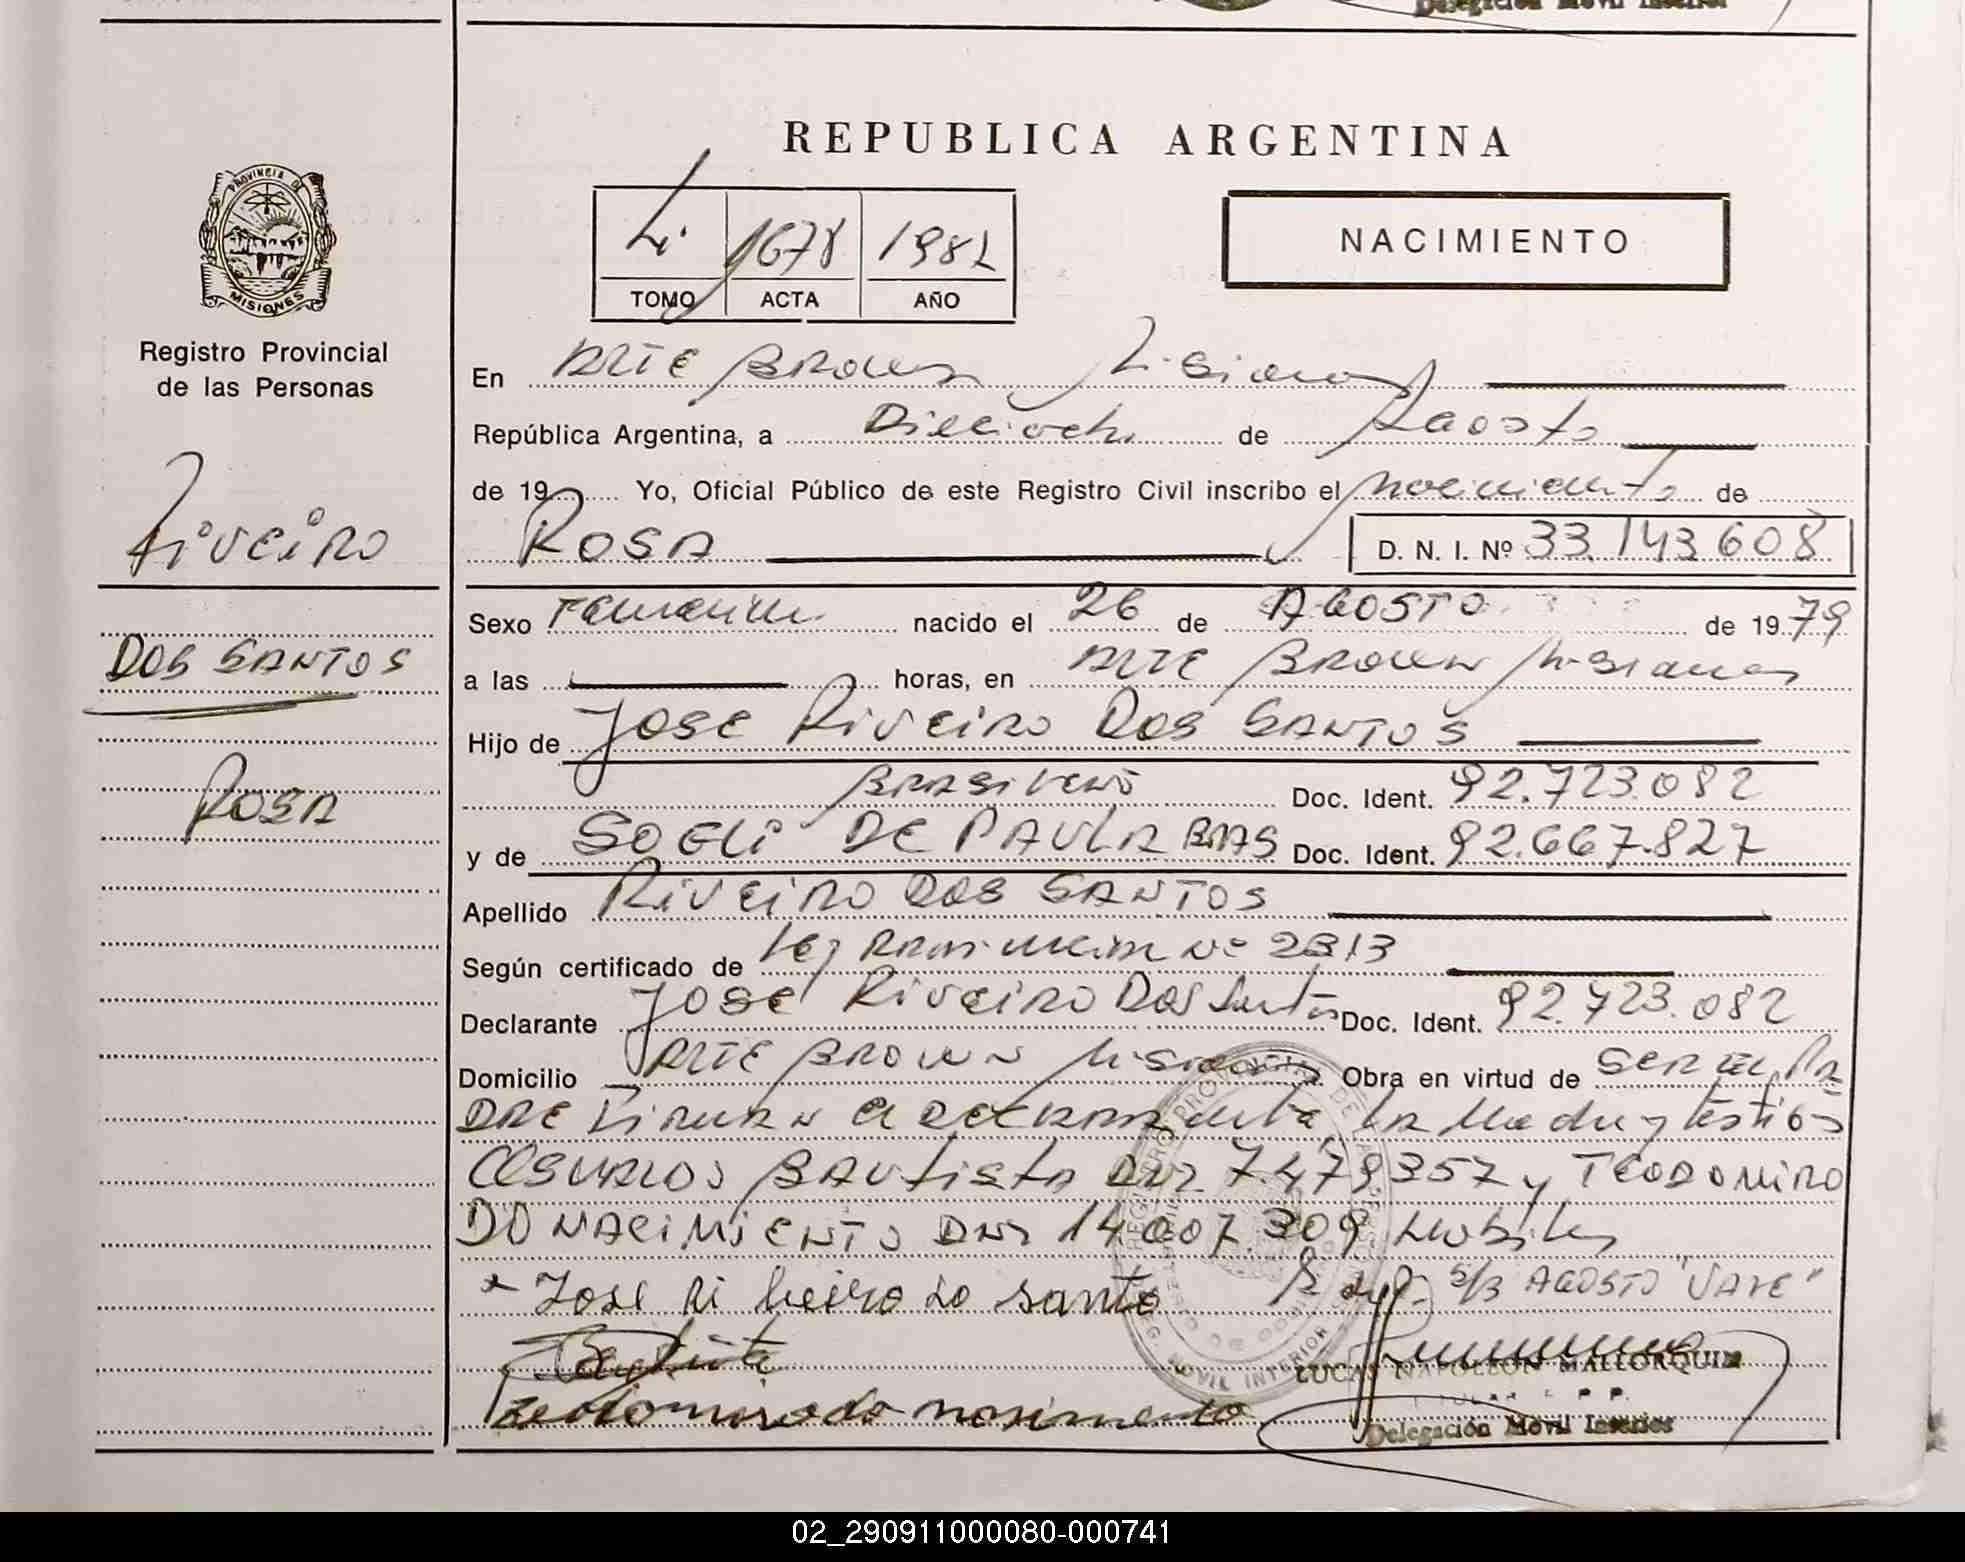 Delegación Móvil Interior
REPUBLICA ARGENTINA
PROVINCIA DE
MISIONES
1678 1982
TOMO ACTA AÑO
NACIMIENTO
Registro Provincial
de las Personas
Riveiro
DOS SANTOS
ROSA
En ALTE BROWN Misiones
República Argentina, a Dieciocho de Agosto
de 19 Yo, Oficial Público de este Registro Civil inscribo el nacimiento de
ROSA D. N. I. Nº 33.143.608
Sexo Femenino nacido el 26 de AGOSTO de 1979
a las horas, en ALTE BROWN Misiones
Hijo de JOSE RIVEIRO DOS SANTOS
BRASILERO Doc. Ident. 92.723.082
y de SOELI DE PAULA BRAS Doc. Ident. 92.667.827
Apellido RIVEIRO DOS SANTOS
Según certificado de Nº 2313
Declarante JOSE RIVEIRO DOS Santos Doc. Ident. 92.723.082
Domicilio ALTE BROWN Misiones Obra en virtud de SER EL PA
DRE FIRMAN el declarante, la Madre y testigos
OSVALDO BAUTISTA DNI 7.479357 y TEODOMIRO
DO NACIMIENTO DNI 14.007.309
Jose Ri beiro do santo S/B AGOSTO "VALE"
Bautista
LUCAS NAPOLEON MALLORQUIN
teodomiro do nasimento
Delegación Móvil Interior
02_290911000080-000741